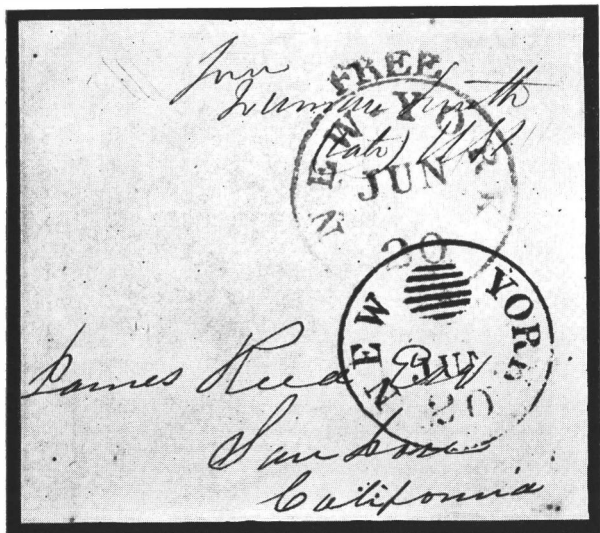 Free
FREE
Truman Smith
(late) USS
NEW-YORK
JUN
20
NEW YORK
JUL
20
James Reed Esq
San Jose
California